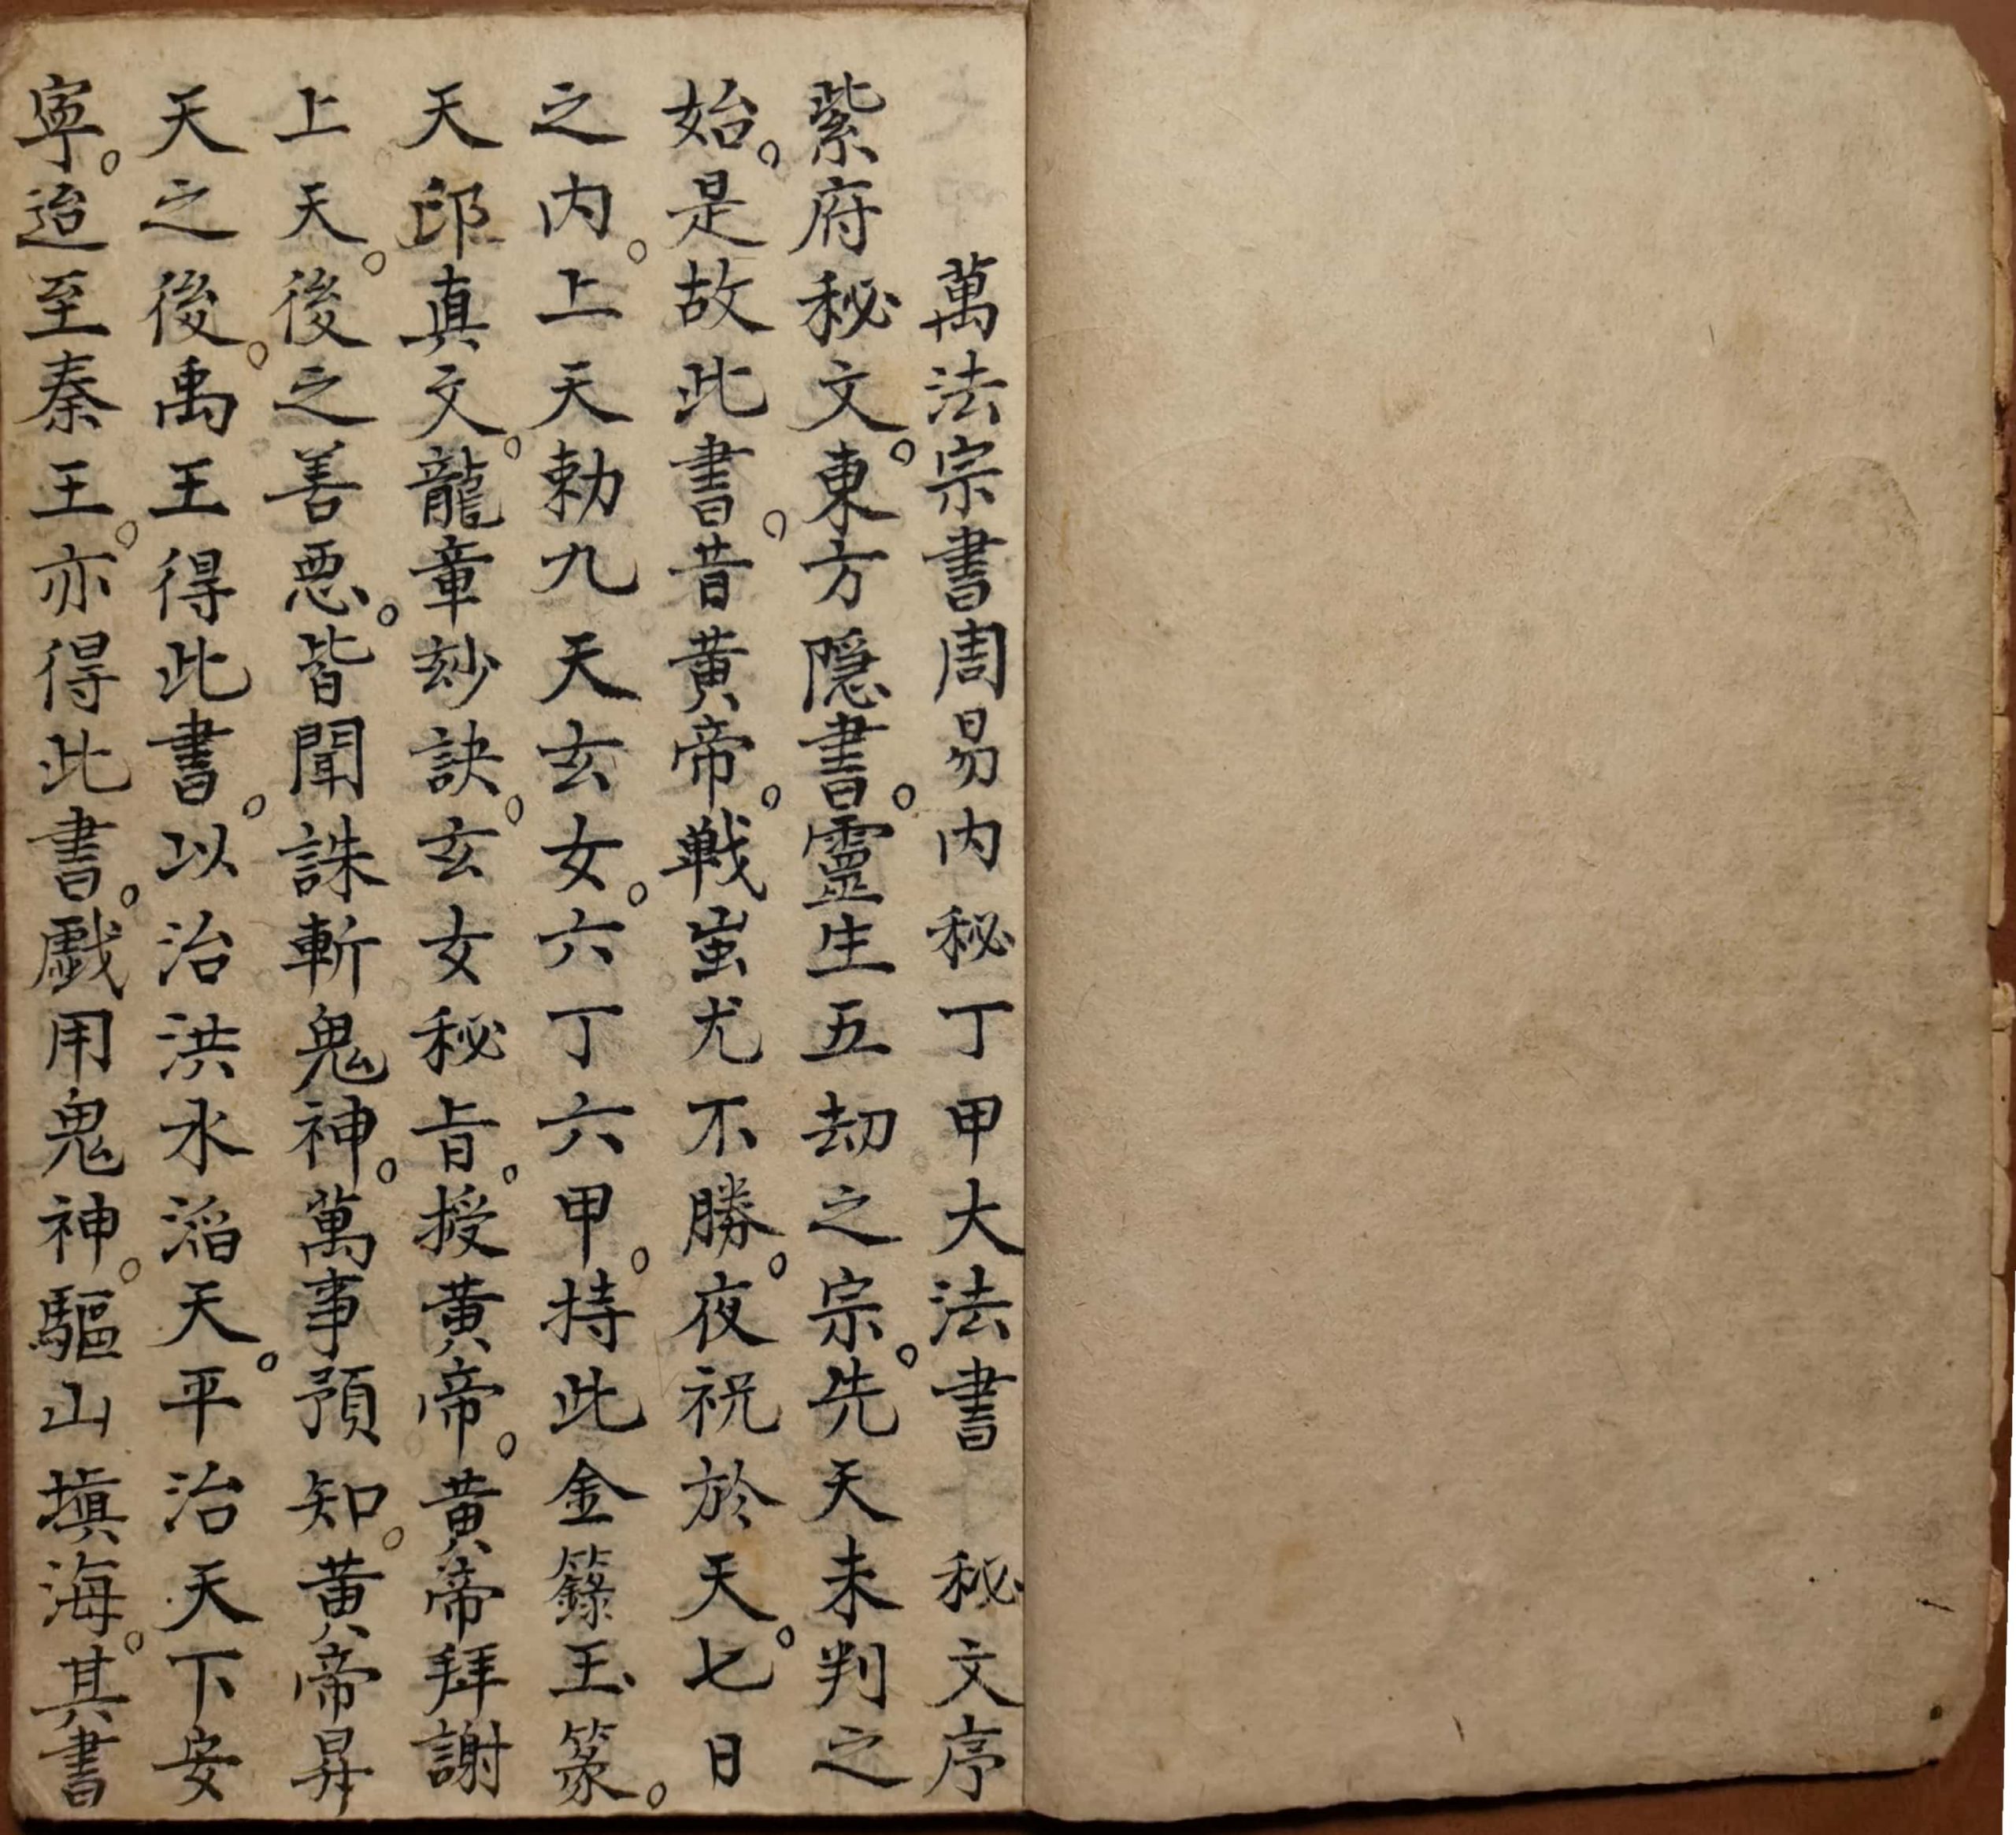 萬法宗書周易内秘丁甲大法書 秘文序
紫府秘文。東方隱書。靈生五劫之宗。先天未判之
始。是故此書。昔黄帝。戦蚩尤不勝。夜祝於天。七日
之内。上天勅九天玄女。六丁六甲。持此金籙玉篆。
天印真文。龍章玅訣。玄女秘旨。授黄帝。黄帝拜謝
上天。後之善惡。皆聞誅斬鬼神。萬事預知。黄帝昇
天之後。禹王得此書。以治洪水滔天。平治天下安
寧。迨至秦王。亦得此書。戯用鬼神。驅山塡海。其書